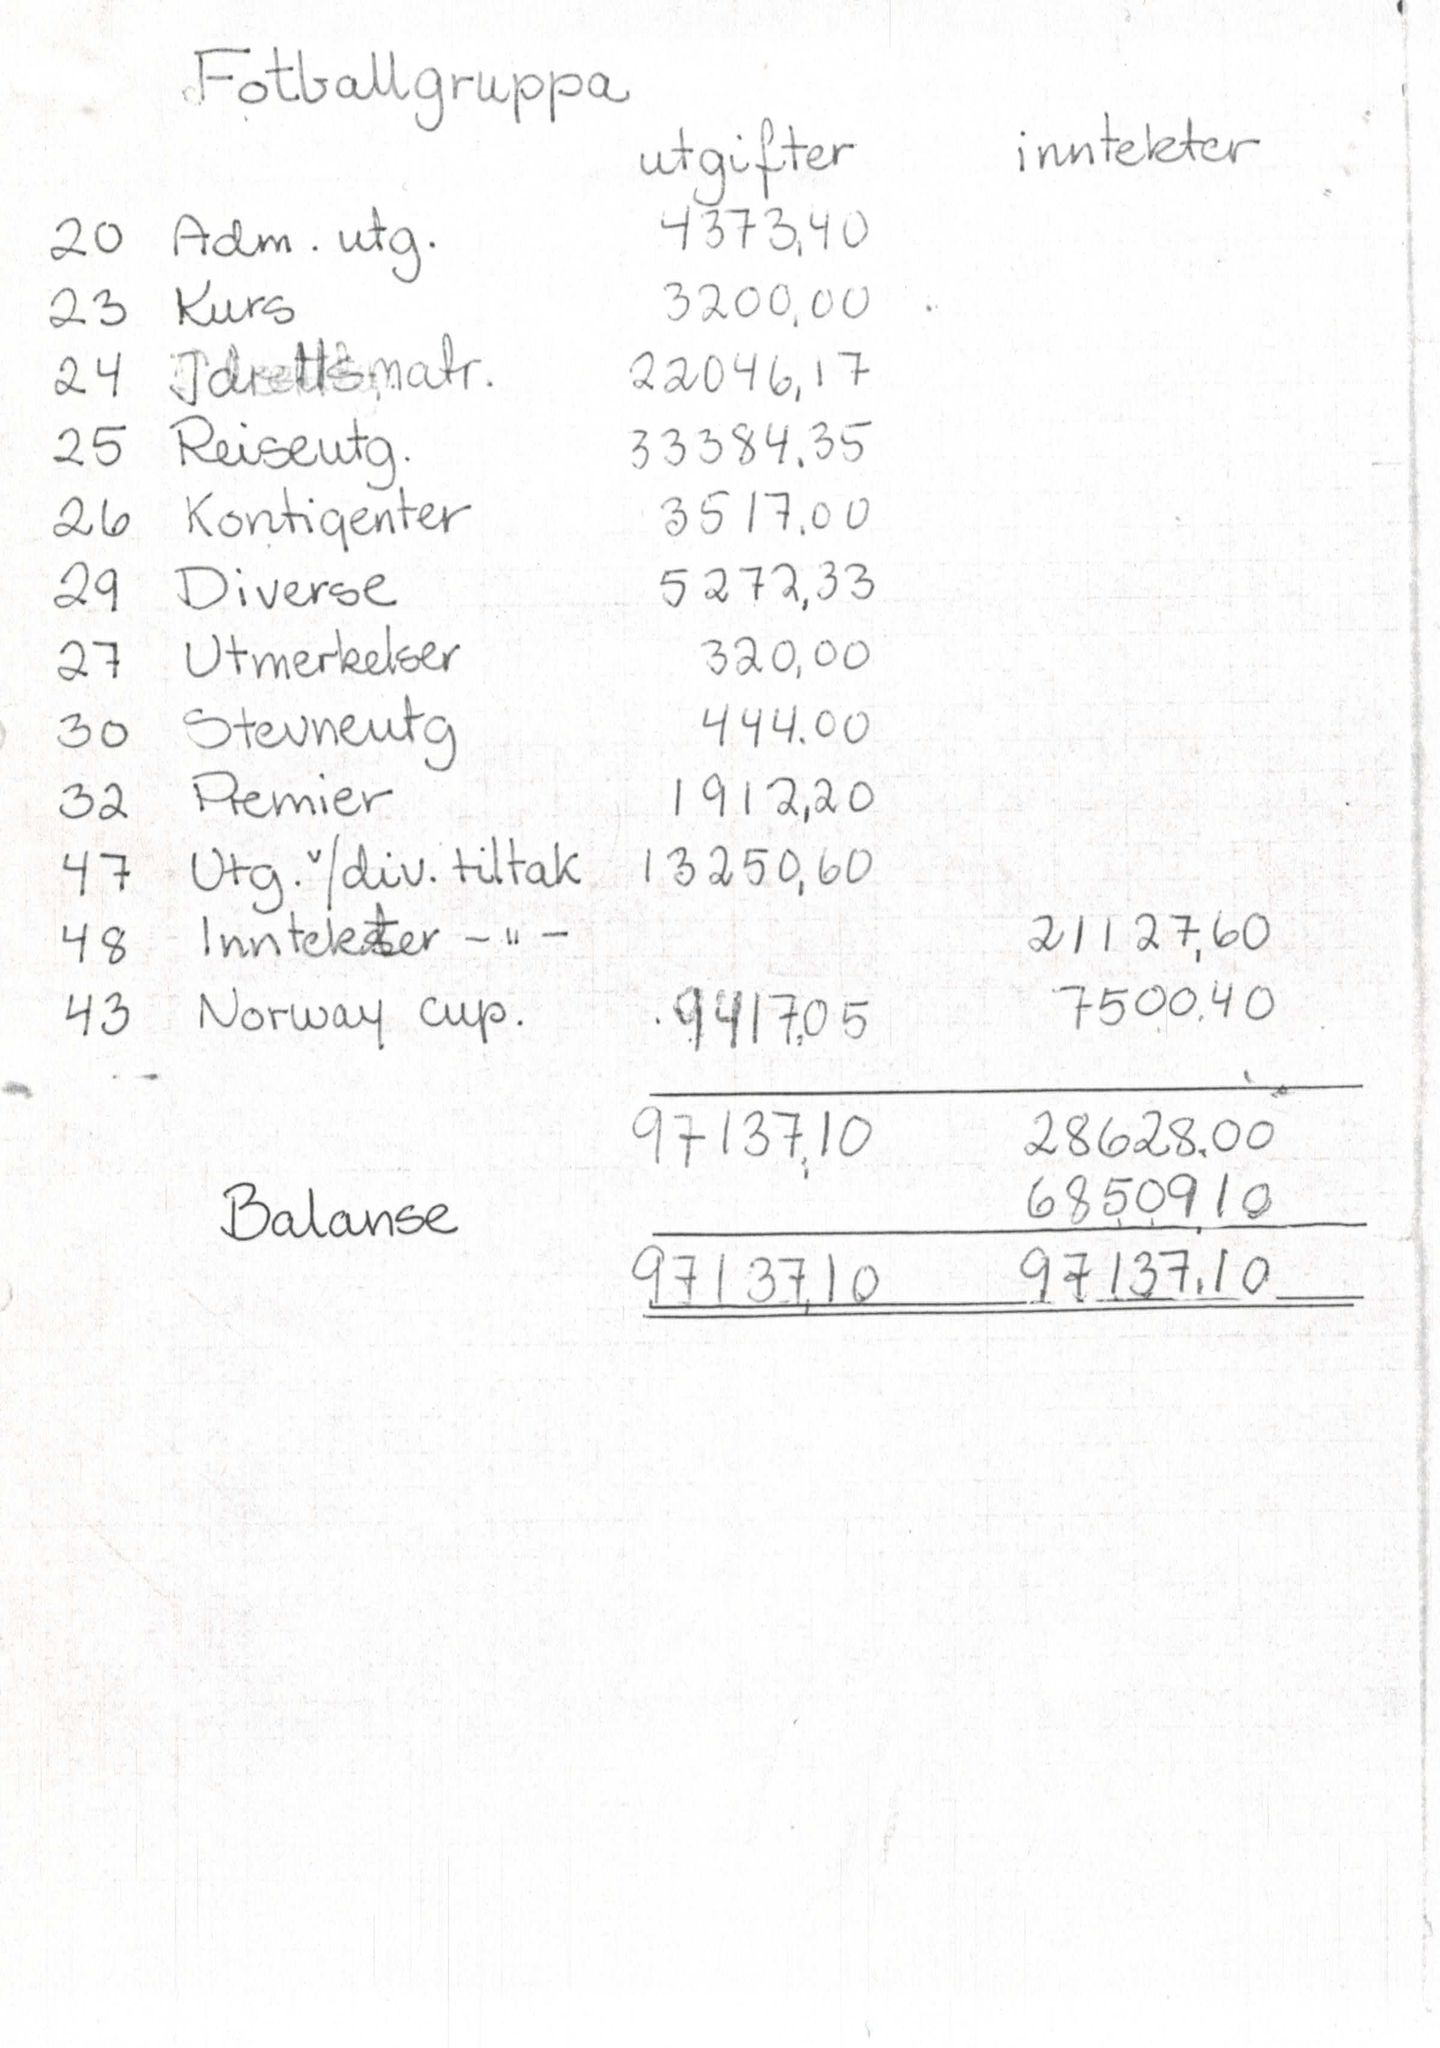 Fotballgruppa
utgifter inntekter
20 Adm. utg. 4373,40
23 Kurs 3200,00
24 Idrettsmatr. 22046,17
25 Reiseutg. 33384,35
26 Kontigenter 3517.00
29 Diverse 5272,33
27 Utmerkelser 320,00
30 Stevneutg 444.00
32 Premier 1912,20
47 Utg. v/div. tiltak 13250,60
48 Inntekter -"- 21127,60
43 Norway cup. 9417,05 7500.40
97137,10 28628.00
Balanse 68509,10
97137,10 97137.10